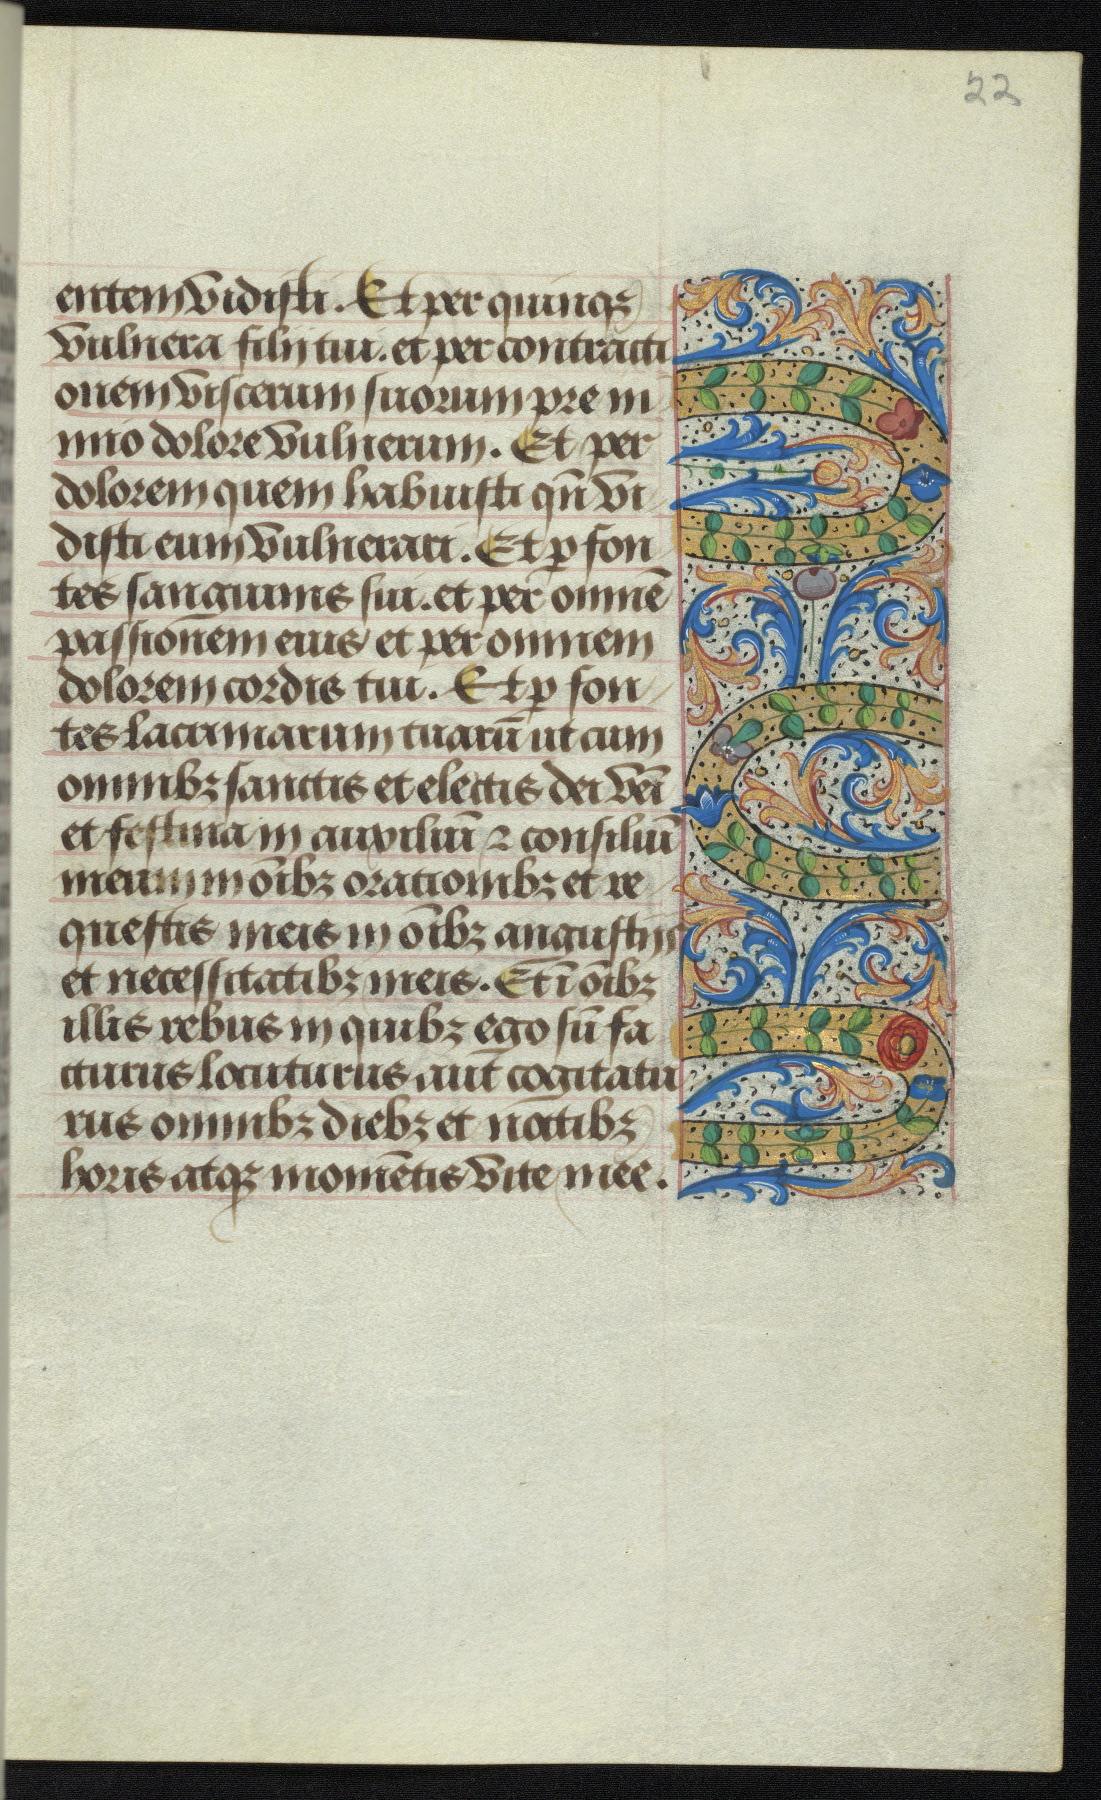 22
entem vidisti. Et per quinqꝫ
vulnera filij tui. et per contracti
onem viscerum suorum pre ni
mio dolore vulnerum. Et per
dolorem quem habuisti qn̄ vi
disti eum vulnerari. Et ꝑ fon
tes sanguinis sui. et per omnē
passionem eius et per omnem
dolorem cordis tui. Et ꝑ fon
tes lacrimarum tuarū ut cum
omnibꝫ sanctis et electis dei veni
et festina in auxiliū ⁊ consiliū
meum in oībꝫ orationibꝫ et re
questis meis in oībꝫ angustijs
et necessitatibꝫ meis. Et ī oībꝫ
illis rebus in quibꝫ ego sū fa
cturus locuturus aut̄ cogitatu
rus omnibꝫ diebꝫ et noctibꝫ
horis atqꝫ momētis vite mee.